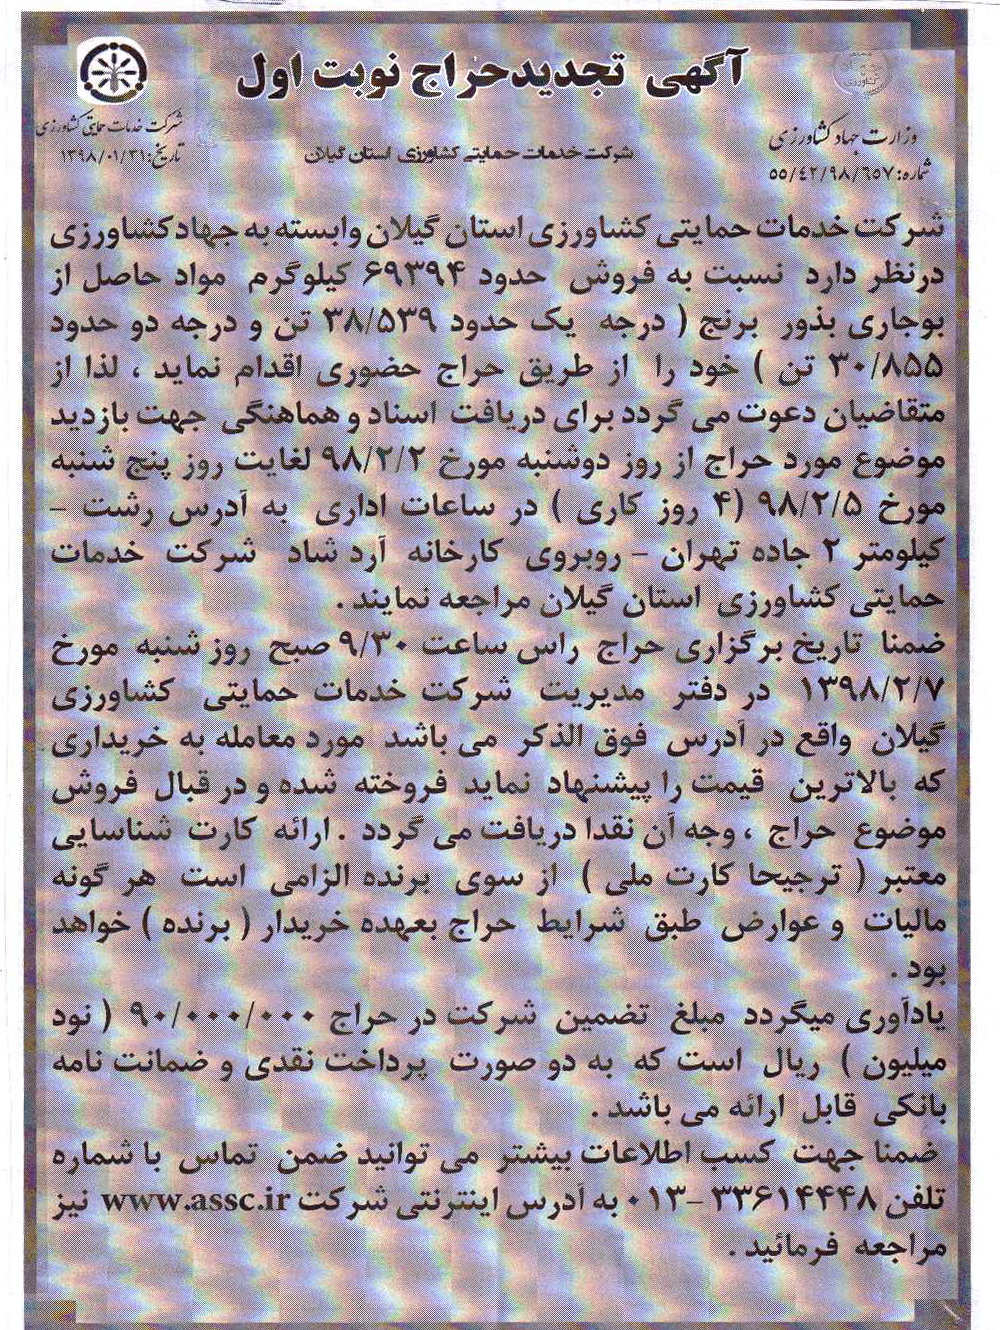 آگهی تجدیدحراج نوبت اول
وزارت جهاد کشاورزی
شماره: ۵۵/۴۲/۹۸/۶۵۷
شرکت خدمات حمایتی کشاورزی استان گیلان
شرکت خدمات حمایتی کشاورزی
تاریخ: ۱۳۹۸/۰۱/۳۱
شرکت خدمات حمایتی کشاورزی استان گیلان وابسته به جهادکشاورزی
درنظر دارد نسبت به فروش حدود ۶۹۳۹۴ کیلوگرم مواد حاصل از
بوجاری بذور برنج ( درجه یک حدود ۳۸/۵۳۹ تن و درجه دو حدود
۳۰/۸۵۵ تن ) خود را از طریق حراج حضوری اقدام نماید ، لذا از
متقاضیان دعوت می گردد برای دریافت اسناد و هماهنگی جهت بازدید
موضوع مورد حراج از روز دوشنبه مورخ ۹۸/۲/۲ لغایت روز پنج شنبه
مورخ ۹۸/۲/۵ (۴ روز کاری ) در ساعات اداری به آدرس رشت –
کیلومتر ۲ جاده تهران – روبروی کارخانه آرد شاد شرکت خدمات
حمایتی کشاورزی استان گیلان مراجعه نمایند .
ضمنا تاریخ برگزاری حراج راس ساعت ۹/۳۰ صبح روز شنبه مورخ
۱۳۹۸/۲/۷ در دفتر مدیریت شرکت خدمات حمایتی کشاورزی
گیلان واقع در آدرس فوق الذکر می باشد مورد معامله به خریداری
که بالاترین قیمت را پیشنهاد نماید فروخته شده و در قبال فروش
موضوع حراج ، وجه آن نقدا دریافت می گردد . ارائه کارت شناسایی
معتبر ( ترجیحا کارت ملی ) از سوی برنده الزامی است هر گونه
مالیات و عوارض طبق شرایط حراج بعهده خریدار ( برنده ) خواهد
بود .
یادآوری میگردد مبلغ تضمین شرکت در حراج ۹۰/۰۰۰/۰۰۰ ( نود
میلیون ) ریال است که به دو صورت پرداخت نقدی و ضمانت نامه
بانکی قابل ارائه می باشد .
ضمنا جهت کسب اطلاعات بیشتر می توانید ضمن تماس با شماره
تلفن ۳۳۶۱۴۴۴۸ –۰۱۳ به آدرس اینترنتی شرکت www.assc.ir نیز
مراجعه فرمائید .